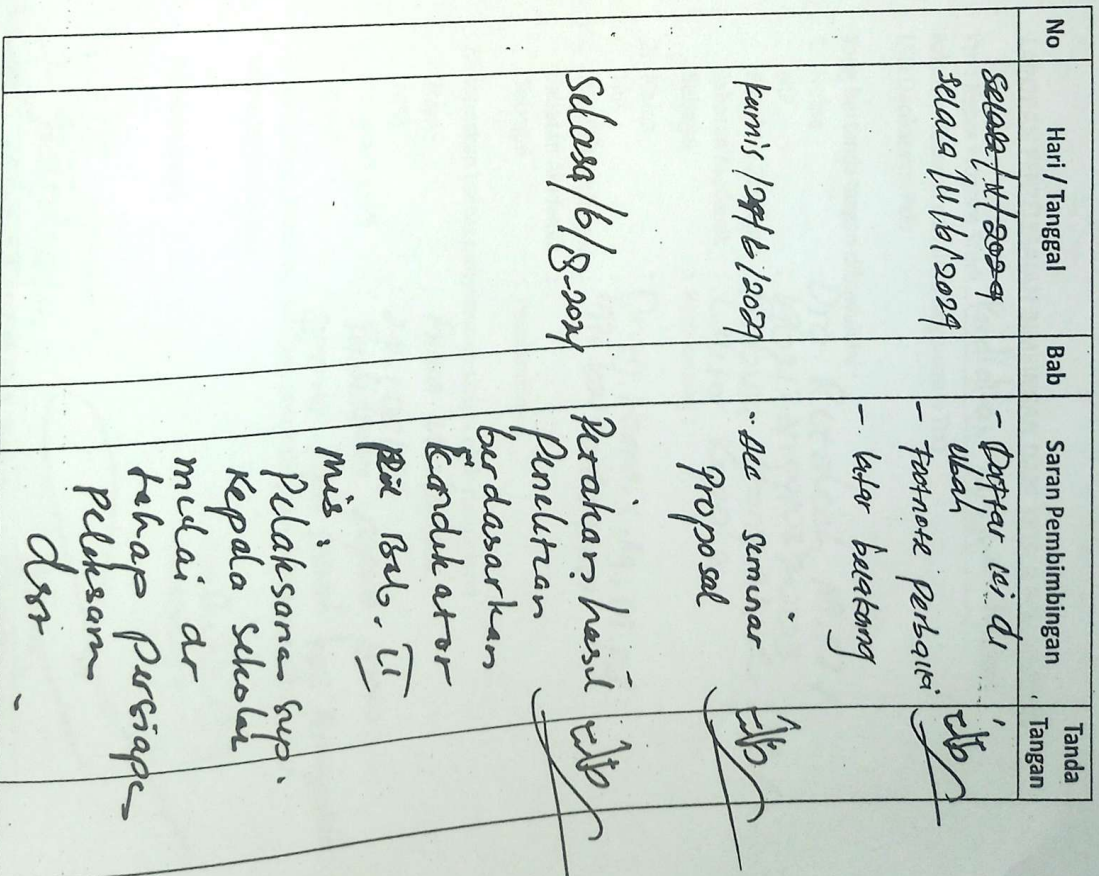 No Hari / Tanggal Bab Saran Pembimbingan Tanda Tangan
Selasa / 11/6/2024
- Daftar isi di
ubah
- Footnote perbaiki
- latar belakang
Kamis / 27/6/2024
- Acc seminar
Proposal
Selasa/6/8-2024
Petakan hasil
Penelitian
berdasarkan
Indikator
Bab. II
Mis:
Pelaksanaan sup.
Kepala sekolah
mulai dr
tahap persiapan
pelaksanaan
dst